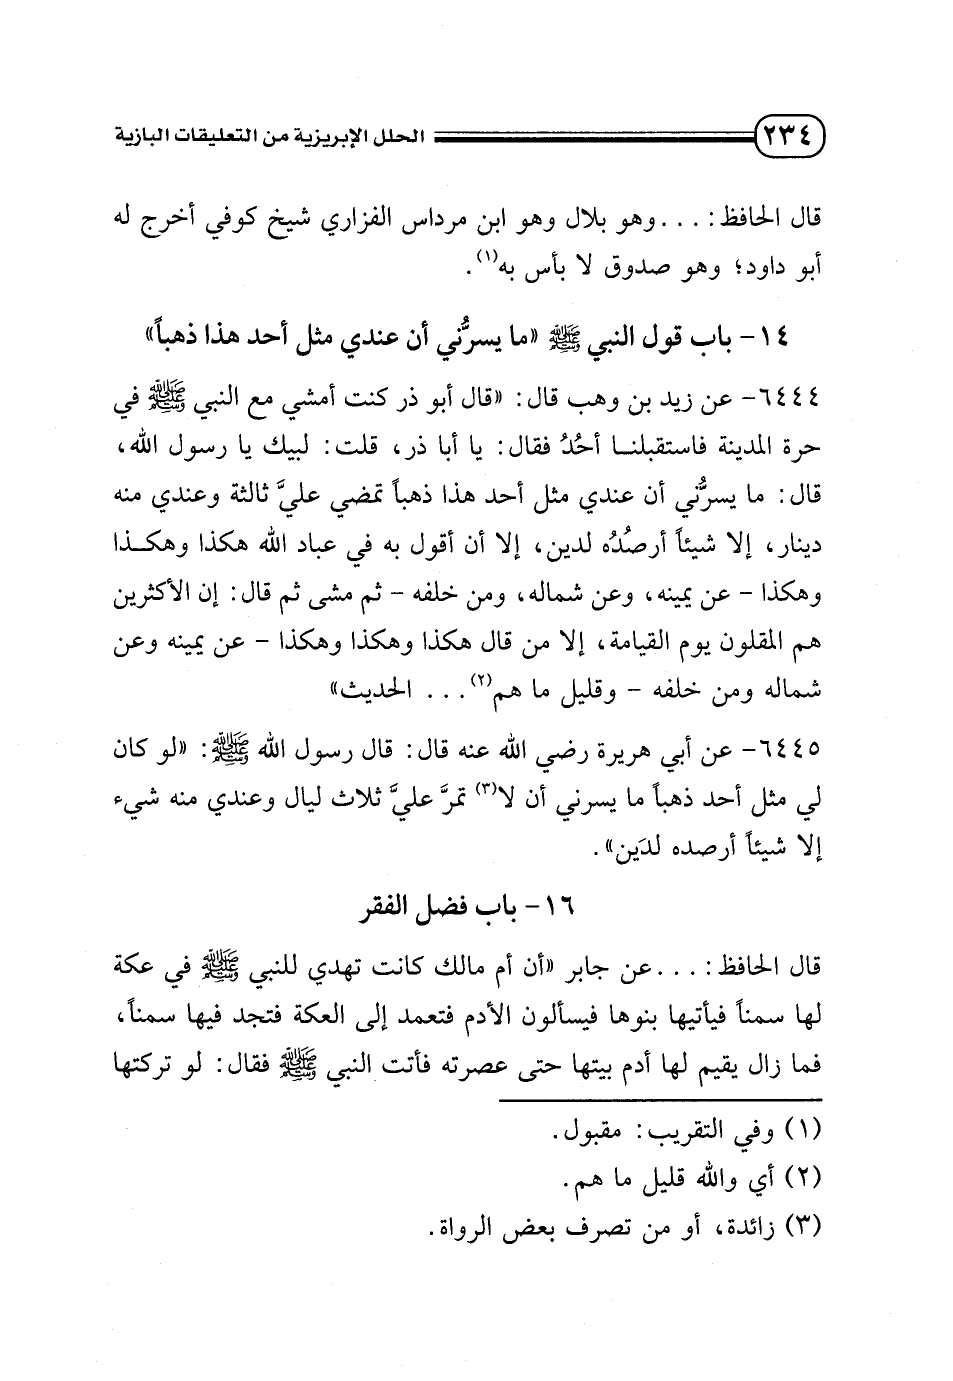 ٢٣٤ الحلل الإبريزية من التعليقات البازية
قال الحافظ: ...وهو بلال وهو ابن مرداس الفزاري شيخ كوفي أخرج له
أبو داود؛ وهو صدوق لا بأس به(١).
١٤- باب قول النبي ﷺ «ما يسرُّني أن عندي مثل أحد هذا ذهباً»
٦٤٤٤- عن زيد بن وهب قال: «قال أبو ذر كنت أمشي مع النبي ﷺ في
حرة المدينة فاستقبلنا أُحُدُ فقال: يا أبا ذر، قلت: لبيك يا رسول الله،
قال: ما يسرُّني أن عندي مثل أحد هذا ذهباً تمضي عليَّ ثالثة وعندي منه
دينار، إلا شيئاً أرصُدُه لدين، إلا أن أقول به في عباد الله هكذا وهكذا
وهكذا - عن يمينه، وعن شماله، ومن خلفه - ثم مشى ثم قال: إن الأكثرين
هم المقلون يوم القيامة، إلا من قال هكذا وهكذا وهكذا - عن يمينه وعن
شماله ومن خلفه - وقليل ما هم(٢)... الحديث»
٦٤٤٥- عن أبي هريرة رضي الله عنه قال: قال رسول الله ﷺ: «لو كان
لي مثل أحد ذهباً ما يسرني أن لا(٣) تمرَّ عليَّ ثلاث ليال وعندي منه شيء
إلا شيئاً أرصده لدَين».
١٦- باب فضل الفقر
قال الحافظ: ...عن جابر «أن أم مالك كانت تهدي للنبي ﷺ في عكة
لها سمناً فيأتيها بنوها فيسألون الأدم فتعمد إلى العكة فتجد فيها سمناً،
فما زال يقيم لها أدم بيتها حتى عصرته فأتت النبي ﷺ فقال: لو تركتها
(١) وفي التقريب: مقبول.
(٢) أي والله قليل ما هم.
(٣) زائدة، أو من تصرف بعض الرواة.